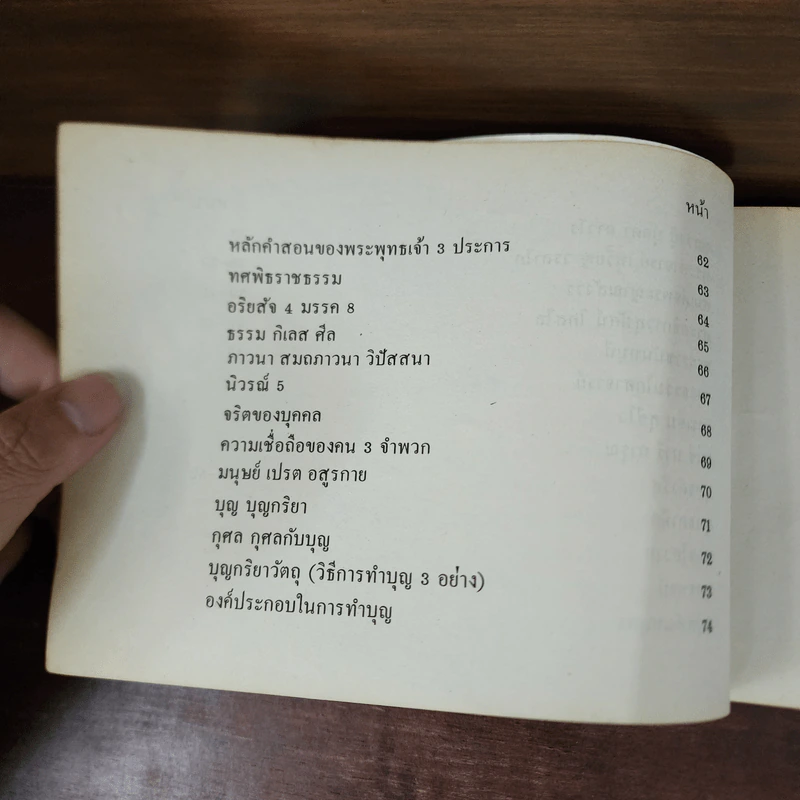 หน้า
หลักคำสอนของพระพุทธเจ้า 3 ประการ 62
ทศพิธราชธรรม 63
อริยสัจ 4 มรรค 8 64
ธรรม กิเลส ศีล 65
ภาวนา สมถภาวนา วิปัสสนา 66
นิวรณ์ 5 67
จริตของบุคคล 68
ความเชื่อถือของคน 3 จำพวก 69
มนุษย์ เปรต อสูรกาย 70
บุญ บุญกริยา 71
กุศล กุศลกับบุญ 72
บุญกริยาวัตถุ (วิธีการทำบุญ 3 อย่าง) 73
องค์ประกอบในการทำบุญ 74